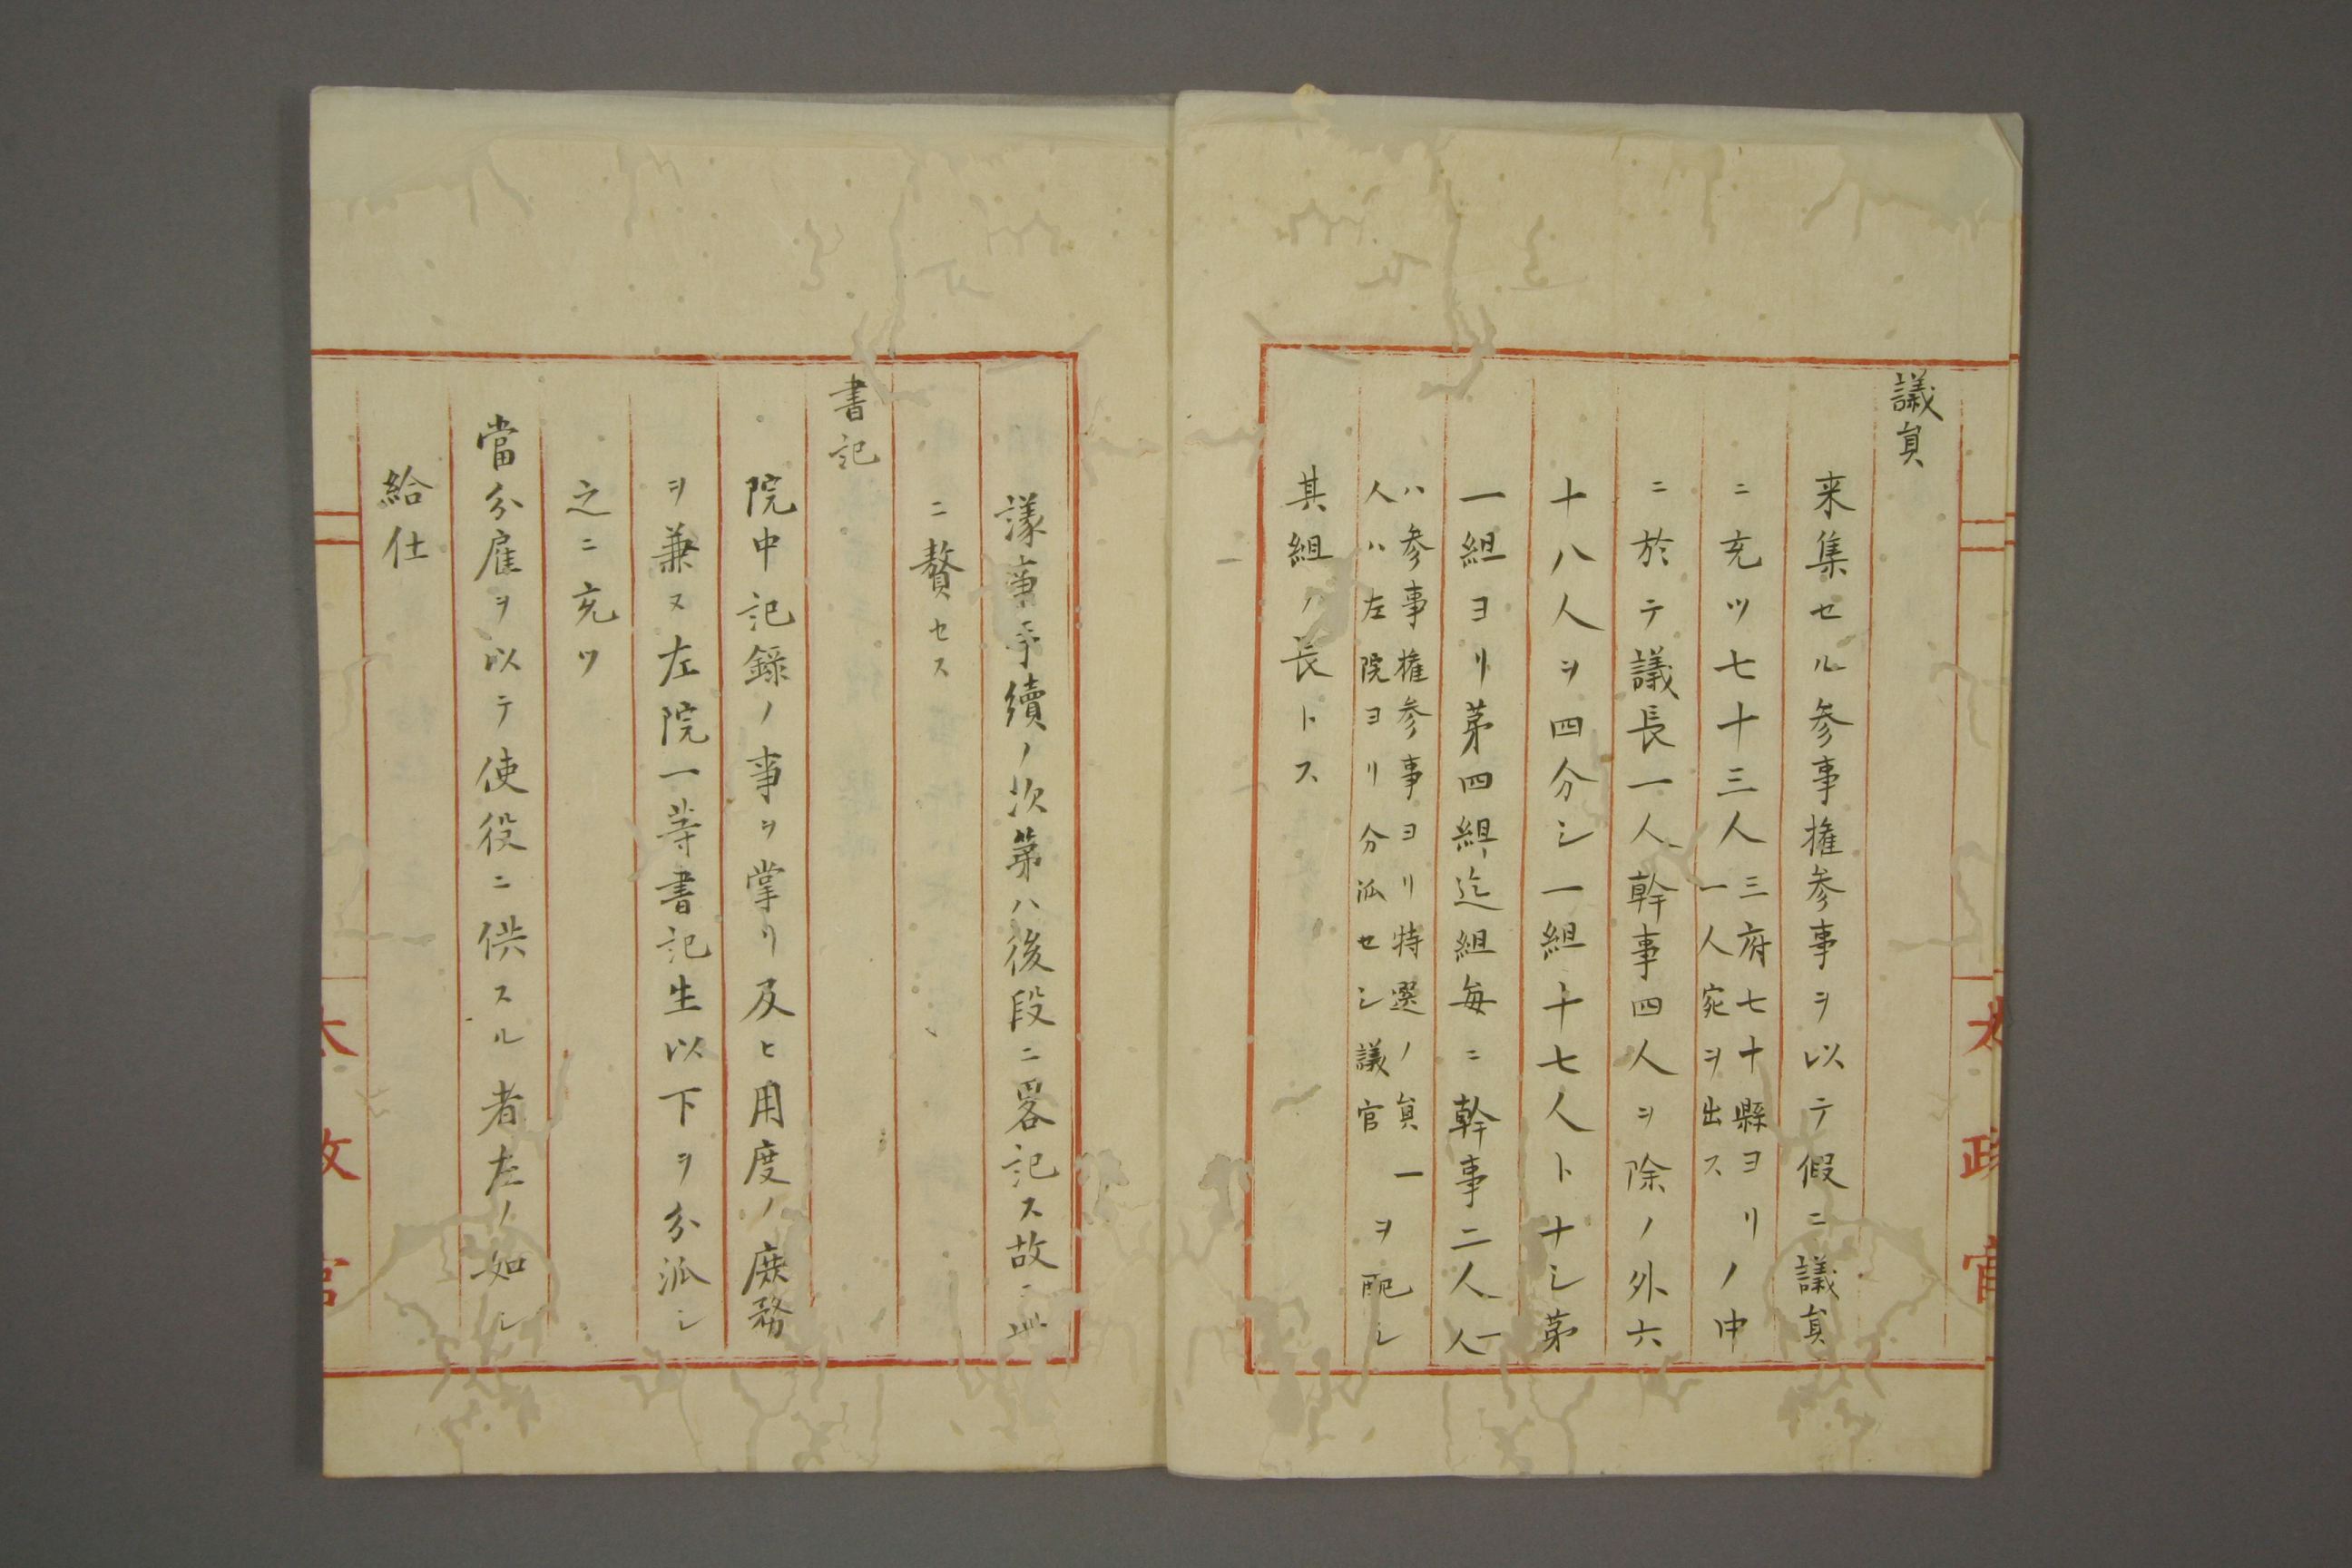 議員
来集セル参事権参事ヲ以テ假ニ議員
ニ充ツ七十三人三府七十縣ヨリノ中
一人宛ヲ出ス
ニ於テ議長一人幹事四人ヲ除ノ外六
十八人ヲ四分シ一組十七人トナシ第
一組ヨリ第四組迄組毎ニ幹事二人一人
ハ参事権参事ヨリ特選ノ員一
人ハ左院ヨリ分派セシ議官ヲ配シ
其組ノ長トス
議事手續ノ次第ハ後段ニ畧記ス故ニ此
ニ贅セス
書記
院中記録ノ事ヲ掌リ及ヒ用度ノ庶務
ヲ兼ヌ左院一等書記生以下ヲ分派シ
之ニ充ツ
當分雇ヲ以テ使役ニ供スル者左ノ如シ
給仕
太政官
太政官